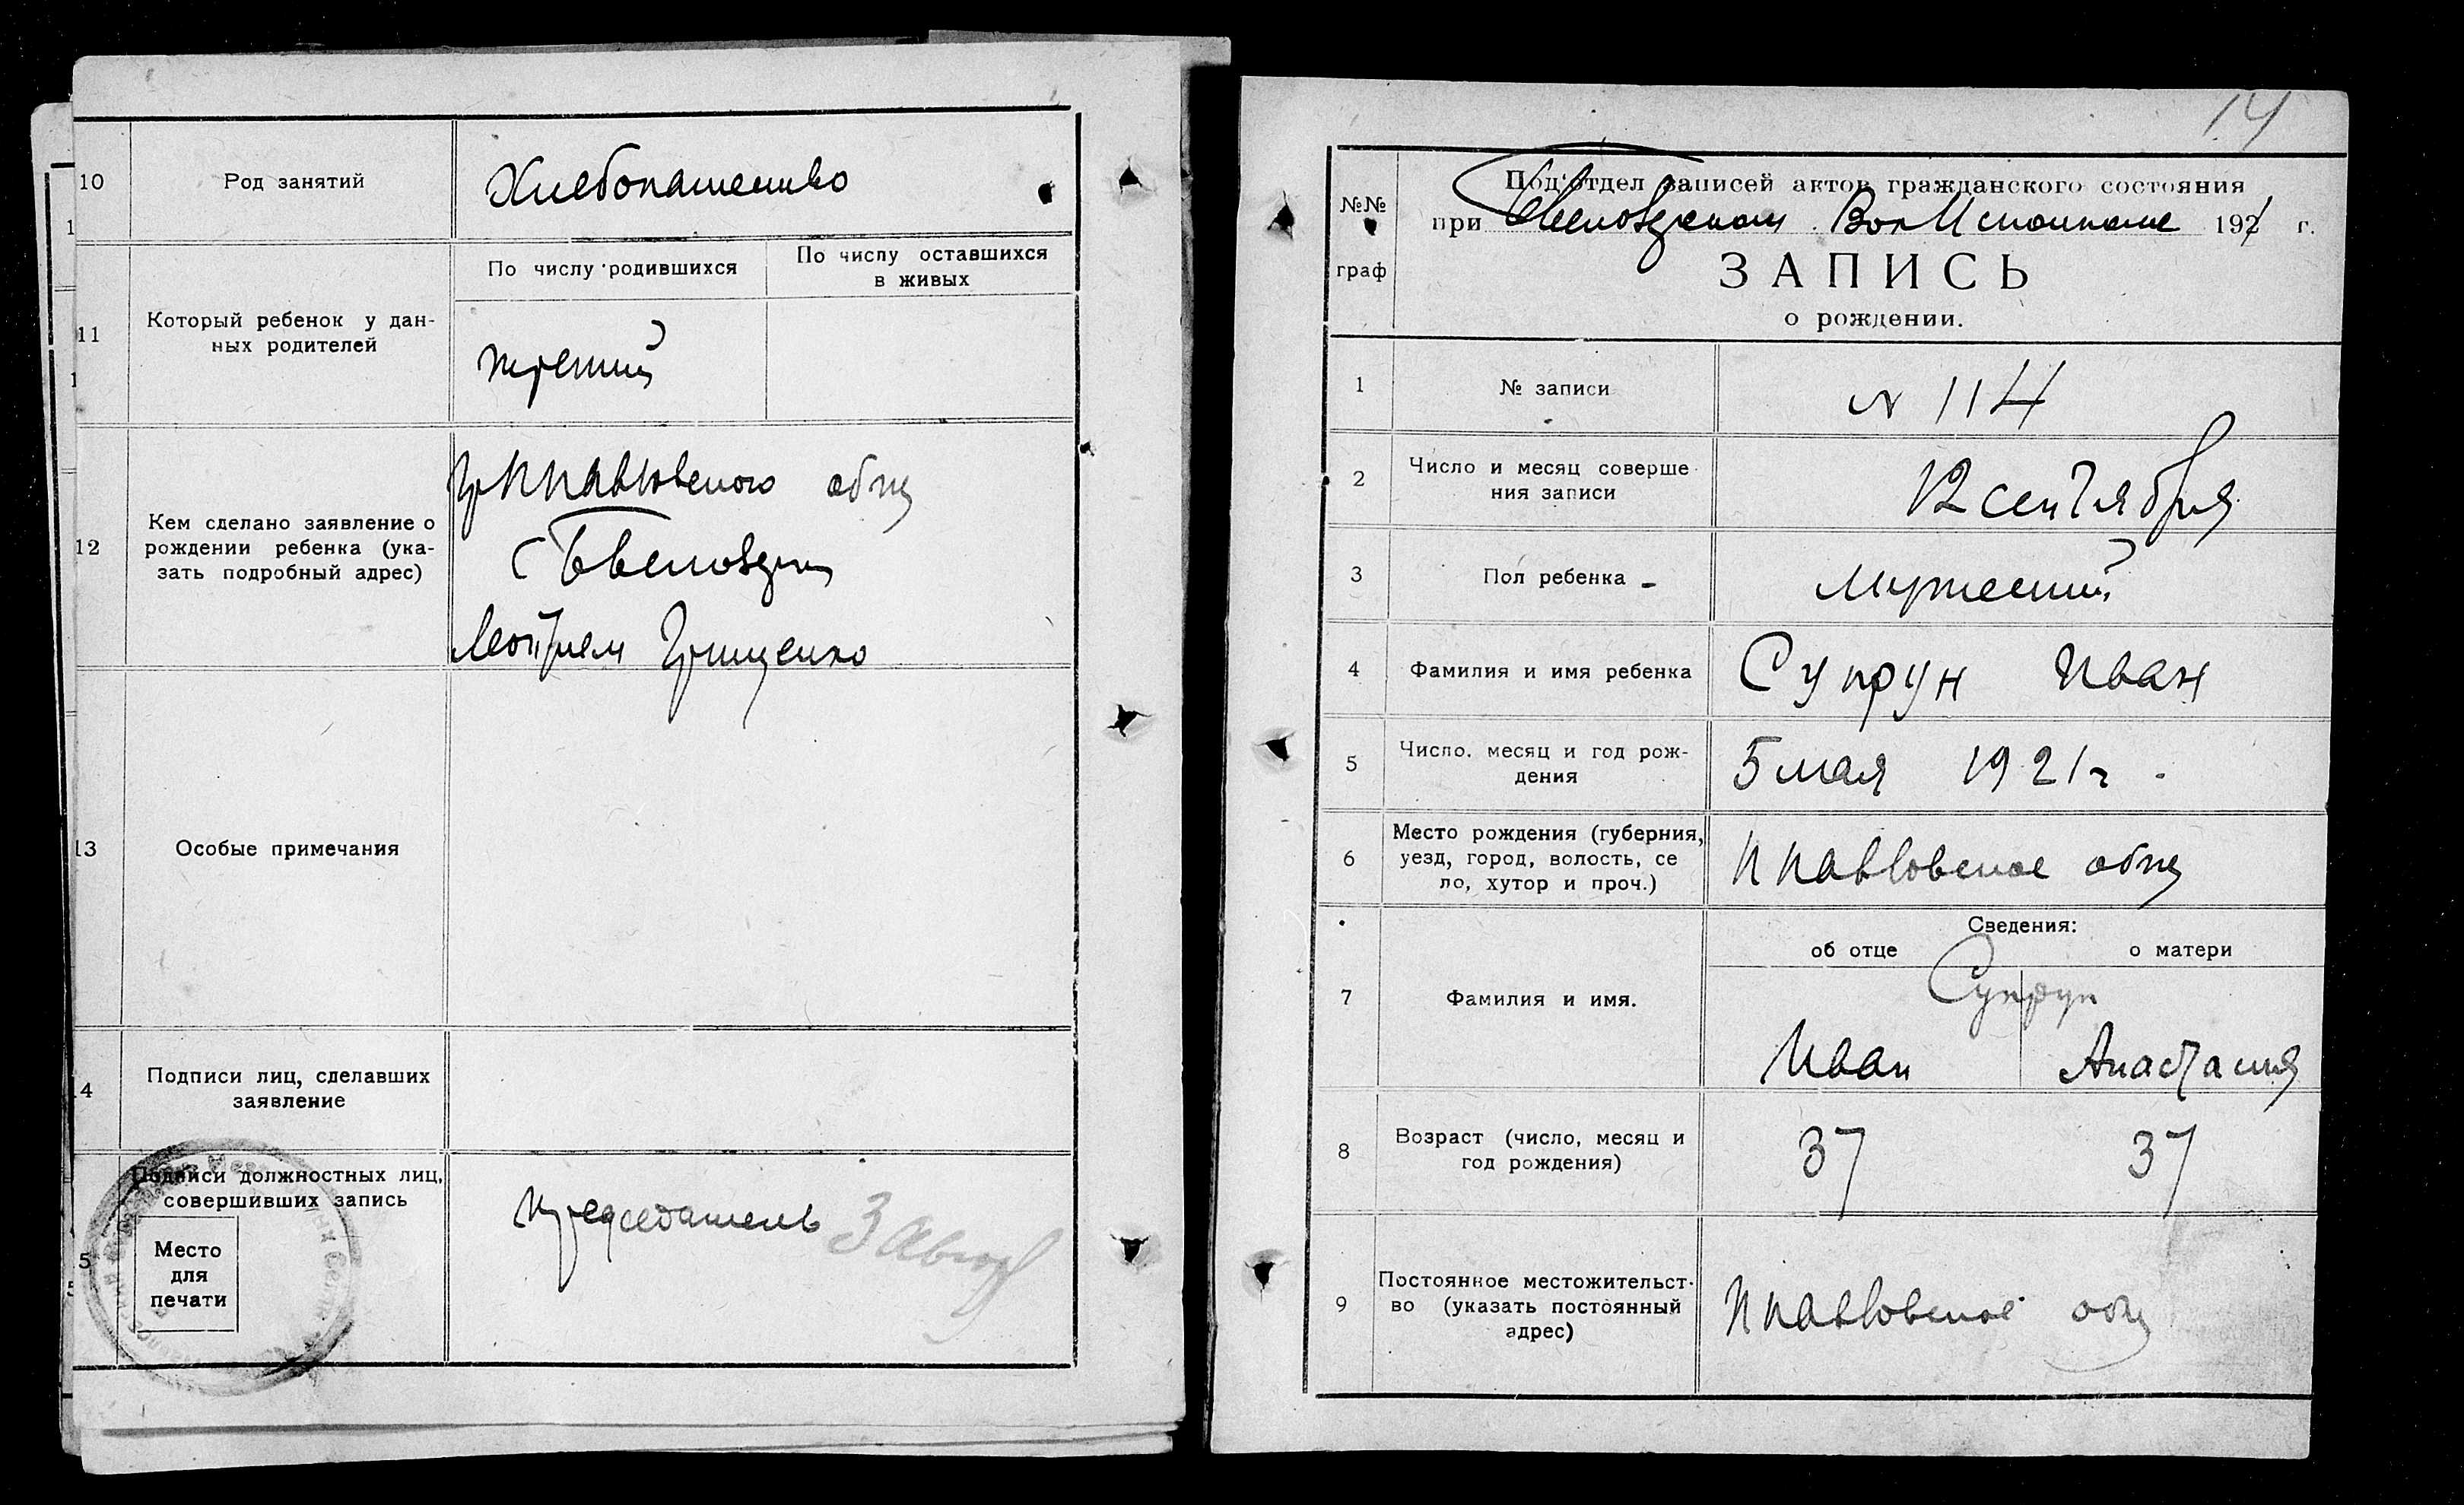 10
Род занятий
Хлебопашество
11
Который ребенок у дан-
ных родителей
По числу родившихся
По числу оставшихся
в живых
третий
12
Кем сделано заявление о
рождении ребенка (ука-
зать подробный адрес)
гр Ппавловского общ
Грищенко
13
Особые примечания
14
Подписи лиц, сделавших
заявление
Подписи должностных лиц,
совершивших запись
Место
для
печати
председатель
14
№№
граф
Под'отдел записей актов гражданского состояния
при ВолИсполкоме 1921 г.
ЗАПИСЬ
о рождении.
1
№ записи
N 114
2
Число и месяц соверше-
ния записи
12 сентября
3
Пол ребенка
мужеский
4
Фамилия и имя ребенка
Супрун Иван
5
Число. месяц и год рож-
дения
5 мая 1921 г.
6
Место рождения (губерния,
уезд, город, волость, се
ло, хутор и проч.)
Ппавловское общ
7
Фамилия и имя.
Сведения:
об отце
о матери
Супрун
Иван
Анастасия
8
Возраст (число, месяц и
год рождения)
37
37
9
Постоянное местожительст-
во (указать постоянный
адрес)
Ппавловское общ